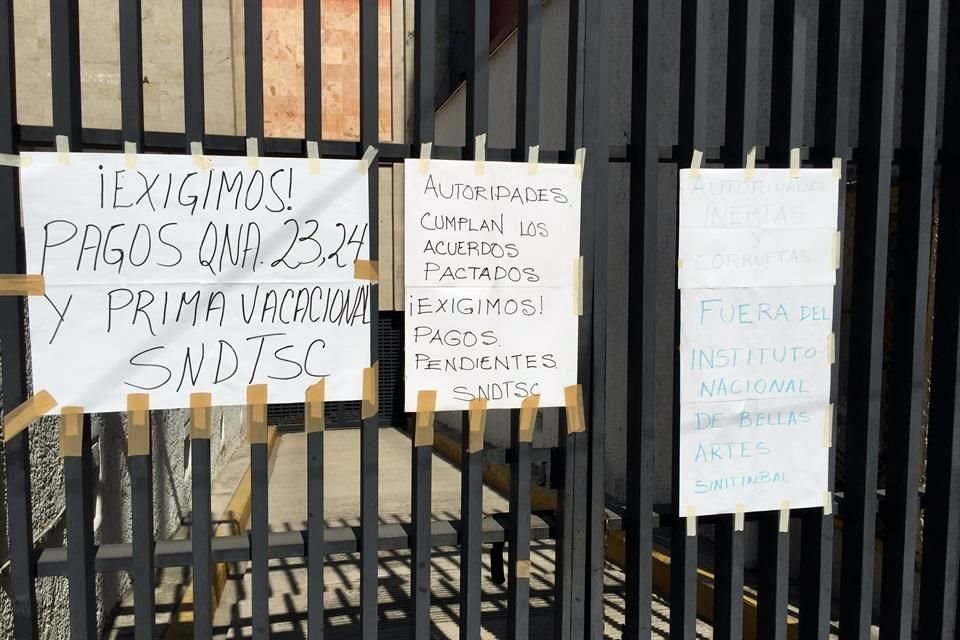 ¡EXIGIMOS!
PAGOS QNA. 23, 24
Y PRIMA VACACIONAL
SNDTSC
AUTORIDADES,
CUMPLAN LOS
ACUERDOS
PACTADOS
¡EXIGIMOS!
PAGOS.
PENDIENTES.
SNDTSC
AUTORIDADES
INEPTAS
Y
CORRUPTAS
FUERA DEL
INSTITUTO
NACIONAL
DE BELLAS
ARTES
SINITINBAL